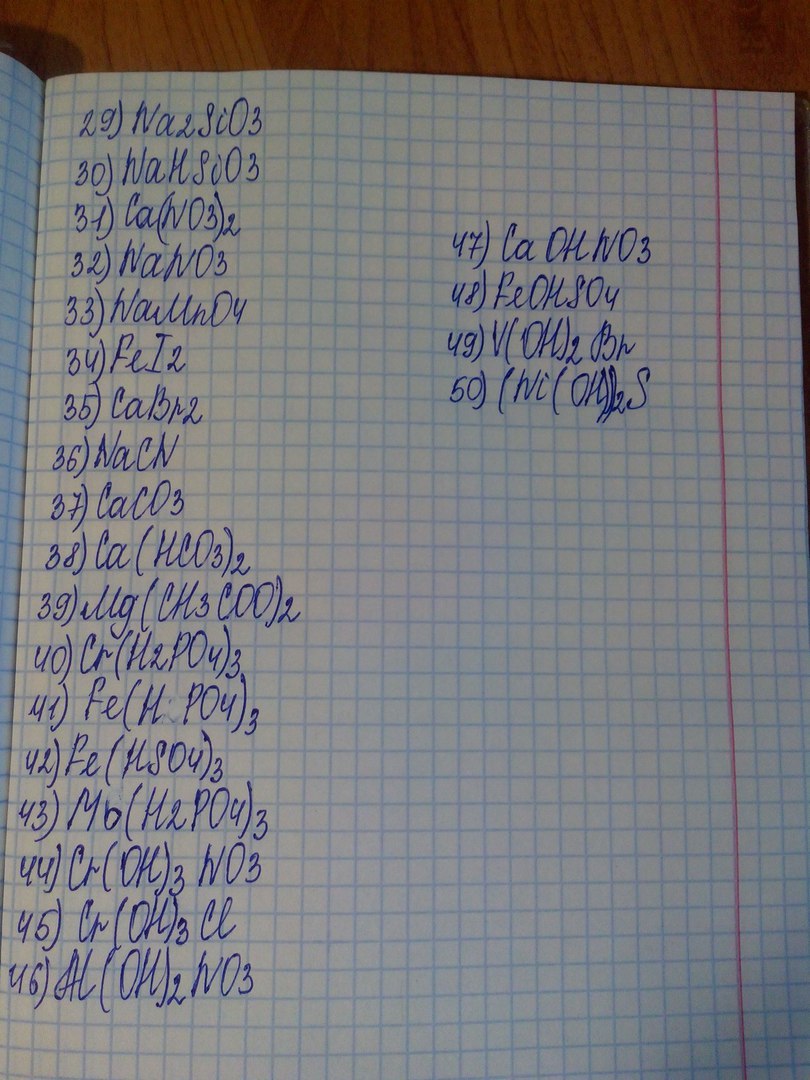 29) Na2SiO3
30) NaHSiO3
31) Ca(NO3)2
32) NaNO3
33) NaMnO4
34) FeI2
35) CaBr2
36) NaCN
37) CaCO3
38) Ca(HCO3)2
39) Mg(CH3COO)2
40) Cr(H2PO4)3
41) Fe(H PO4)3
42) Fe(HSO4)3
43) Mo(H2PO4)3
44) Cr(OH)3 NO3
45) Cr(OH)3 Cl
46) Al(OH)2 NO3
47) CaOHNO3
48) FeOHSO4
49) V(OH)2 Br
50) (Ni(OH))2S